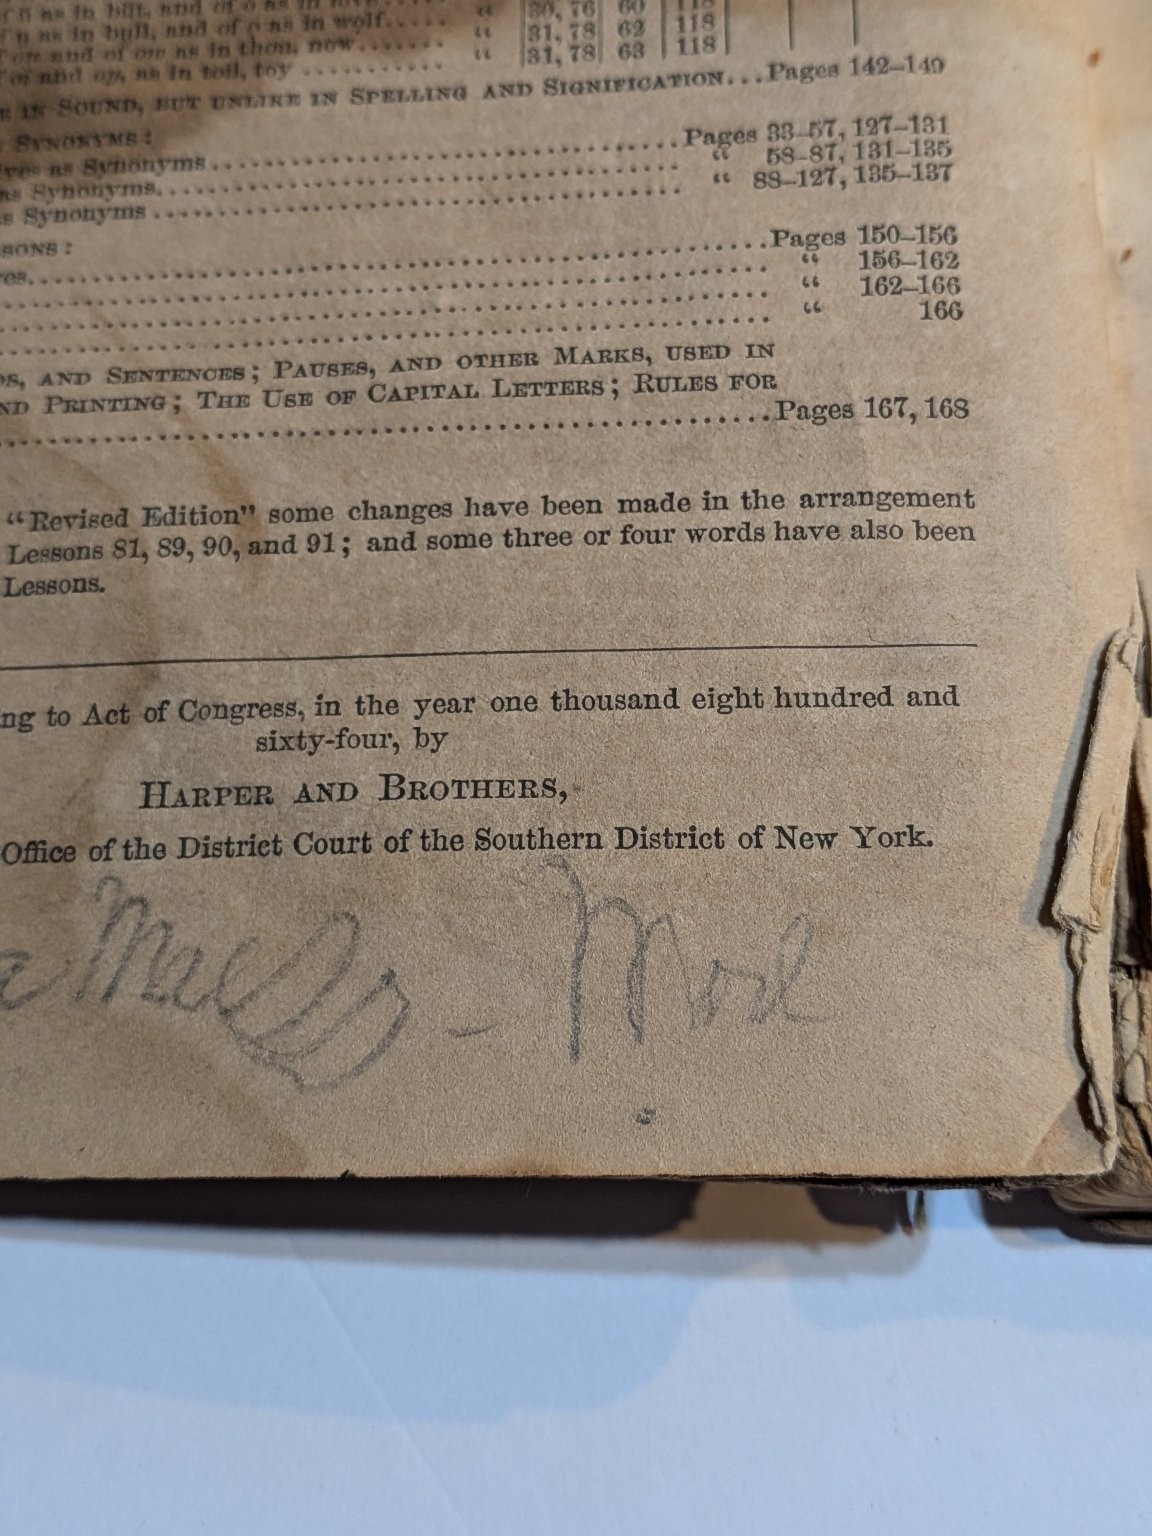 f u as in bull, and of o as in wolf..... “ 31, 78 62 118
f ou and of ow as in thou, now....... “ 31, 78 63 118
f oi and oy, as in toil, toy ...........
E IN SOUND, BUT UNLIKE IN SPELLING AND SIGNIFICATION...Pages 142–149
SYNONYMS:
ives as Synonyms........................Pages 33–57, 127–131
as Synonyms........................ “ 58–87, 131–135
s Synonyms ........................ “ 88–127, 135–137
SONS:
es........................Pages 150–156
........................ “ 156–162
........................ “ 162–166
........................ “ 166
DS, AND SENTENCES; PAUSES, AND OTHER MARKS, USED IN
ND PRINTING; THE USE OF CAPITAL LETTERS; RULES FOR
........................Pages 167, 168
“Revised Edition” some changes have been made in the arrangement
Lessons 81, 89, 90, and 91; and some three or four words have also been
Lessons.
ng to Act of Congress, in the year one thousand eight hundred and
sixty-four, by
HARPER AND BROTHERS,
Office of the District Court of the Southern District of New York.